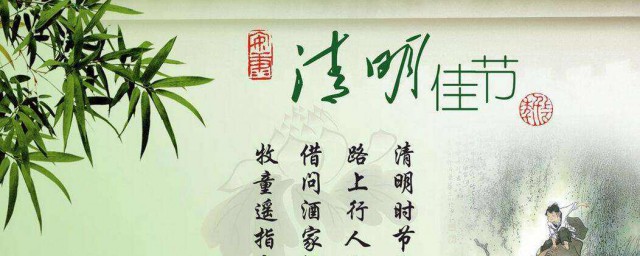 清明佳节
清明时节
路上行人
借问酒家
牧童遥指